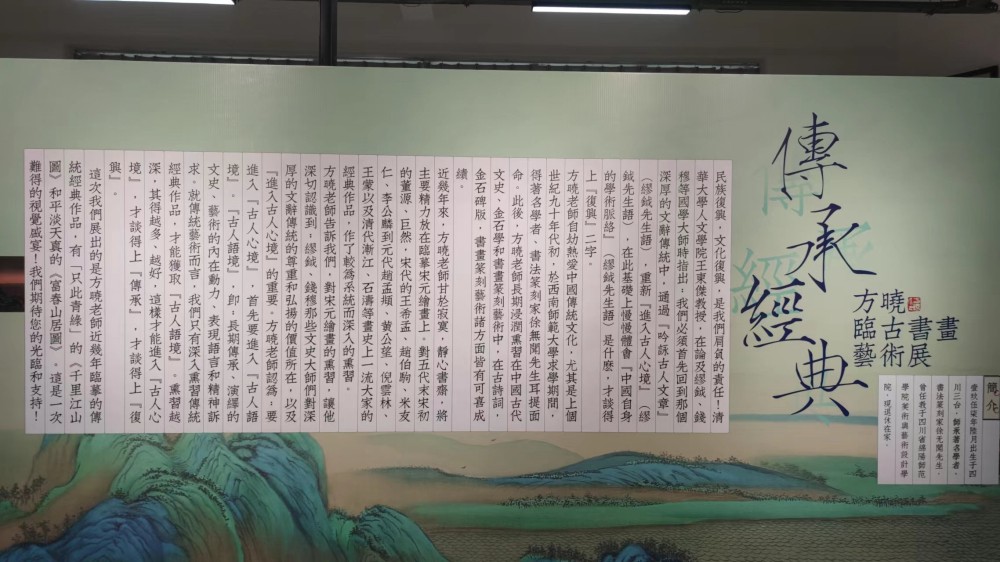 傳承經典
方曉
臨古書畫
藝術展
民族復興，文化復興，是我們肩負的責任！清
華大學人文學院王東傑教授，在論及繆鉞、錢
穆等國學大師時指出，我們必須首先回到那個
深厚的文辭傳統中，通過『吟詠古人文章』
（繆鉞先生語），重新『進入古人心境』（繆
鉞先生語），在此基礎上慢慢體會『中國自身
的學術脈絡』（繆鉞先生語）是什麼，才談得
上『復興』二字。
方曉老師自幼熱愛中國傳統文化，尤其是上個
世紀九十年代初，於西南師範大學求學期間，
得著名學者、書法篆刻家徐無聞先生耳提面
命。此後，方曉老師長期浸潤熏習在中國古代
文史、金石學和書畫篆刻藝術中，在古詩詞、
金石碑版，書畫篆刻藝術諸方面皆有可喜成
績。
近幾年來，方曉老師甘於寂寞，靜心書齋，將
主要精力放在臨摹宋元繪畫上。對五代末宋初
的董源、巨然，宋代的王希孟、趙伯駒、米友
仁、李公麟到元代趙孟頫、黃公望、倪雲林、
王蒙以及清代漸江、石濤等畫史上一流大家的
經典作品，作了較為系統而深入的熏習。
方曉老師告訴我們，對宋元繪畫的熏習，讓他
深切認識到：繆鉞、錢穆那些文史大師們對深
厚的文辭傳統的尊重和弘揚的價值所在，以及
『進入古人心境』的重要。方曉老師認為，要
進入『古人心境』，首先要進入『古人語
境』。『古人語境』，即：長期傳承、演繹的
文史、藝術的內在動力、表現語言和精神訴
求。就傳統藝術而言，我們只有深入熏習傳統
經典作品，才能獲取『古人語境』。熏習越
深，其得越多、越好，這樣才能進入『古人心
境』，才談得上『傳承』，才談得上『復
興』。
這次我們展出的是方曉老師近幾年臨摹的傳
統經典作品，有『只此青綠』的《千里江山
圖》和平淡天真的《富春山居圖》。這是一次
難得的視覺盛宴！我們期待您的光臨和支持！
簡介
壹玖伍柒年陸月出生于四
川三台。師承著名學者、
書法篆刻家徐无聞先生。
曾任教于四川省綿陽師范
學院美術與藝術設計學
院。現退休在家。